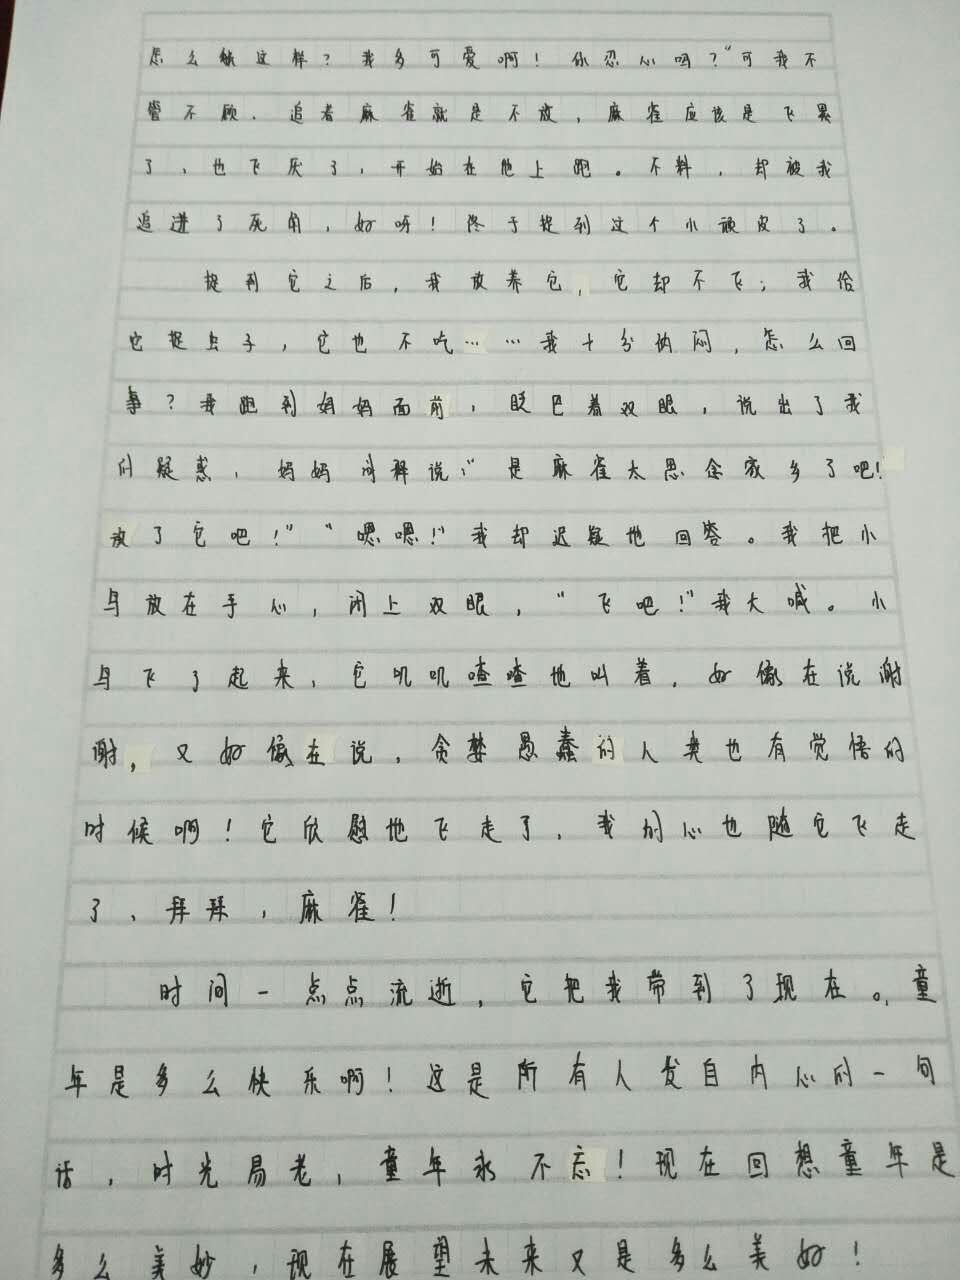 怎么能这样？我多可爱啊！你忍心吗？”可我不
管不顾，追着麻雀就是不放，麻雀应该是飞累
了，也飞厌了，开始在地上跑。不料，却被我
追进了死角，好呀！终于捉到这个小顽皮了。
捉到它之后，我放养它，它却不飞；我给
它捉虫子，它也不吃……我十分纳闷，怎么回
事？我跑到妈妈面前，眨巴着双眼，说出了我
的疑惑，妈妈解释说：“是麻雀太思念家乡了吧！
放了它吧！”“嗯嗯！”我却迟疑地回答。我把小
鸟放在手心，闭上双眼，“飞吧！”我大喊。小
鸟飞了起来，它叽叽喳喳地叫着，好像在说谢
谢，又好像在说，贪婪愚蠢的人类也有觉悟的
时候啊！它欣慰地飞走了，我的心也随它飞走
了，拜拜，麻雀！
时间一点点流逝，它把我带到了现在。童
年是多么快乐啊！这是所有人发自内心的一句
话，时光易老，童年永不忘！现在回想童年是
多么美妙，现在展望未来又是多么美好！